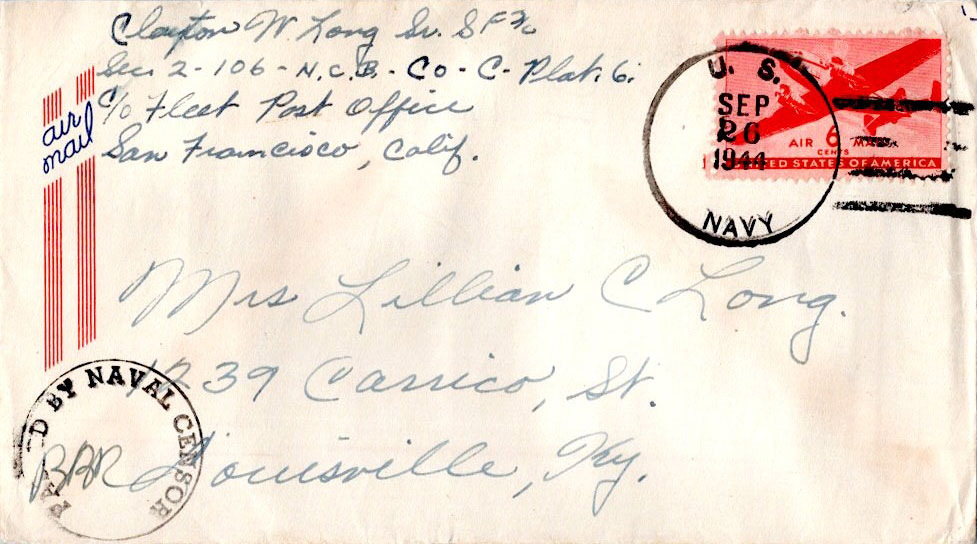 Clayton W Long Sr. S F 3/c
Sec. 2-106-N.C.B.-Co-C-Plat. 6.
c/o Fleet Post Office
San Francisco, Calif.
air
mail
U. S.
SEP
26
1944
NAVY
AIR 6 MAIL
CENTS
UNITED STATES OF AMERICA
Mrs Lillian C Long.
1239 Carrico, St.
Louisville, Ky.
PASSED BY NAVAL CENSOR